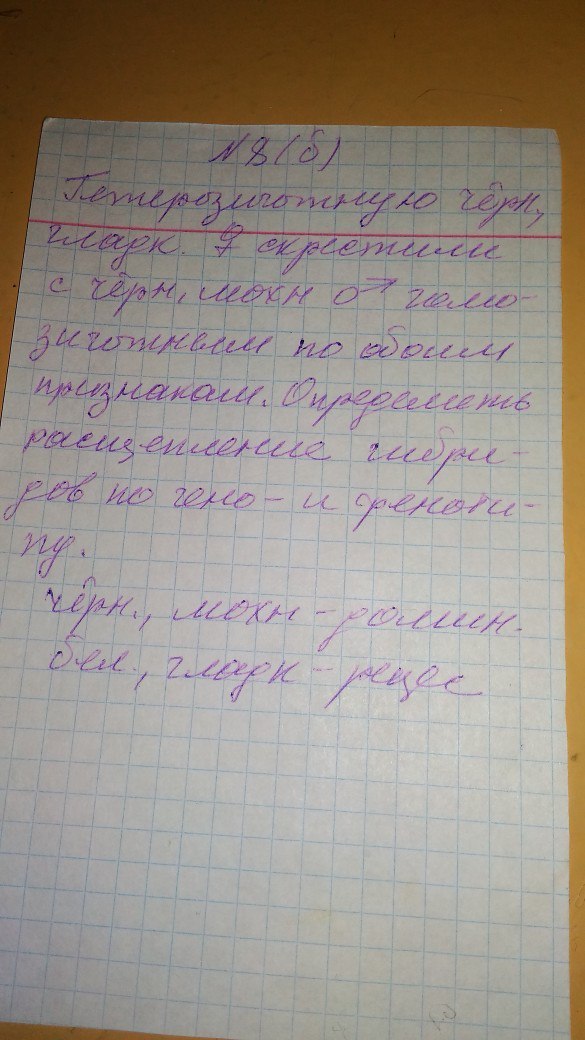 N8(б)
Гетерозиготную чёрн,
гладк. ♀ скрестили
с чёрн, мохн ♂ гомо-
зиготным по обоим
признакам. Определить
расщепление гибри-
дов по гено- и феноти-
пу.
чёрн., мохн - домин.
бел., гладк - рецес